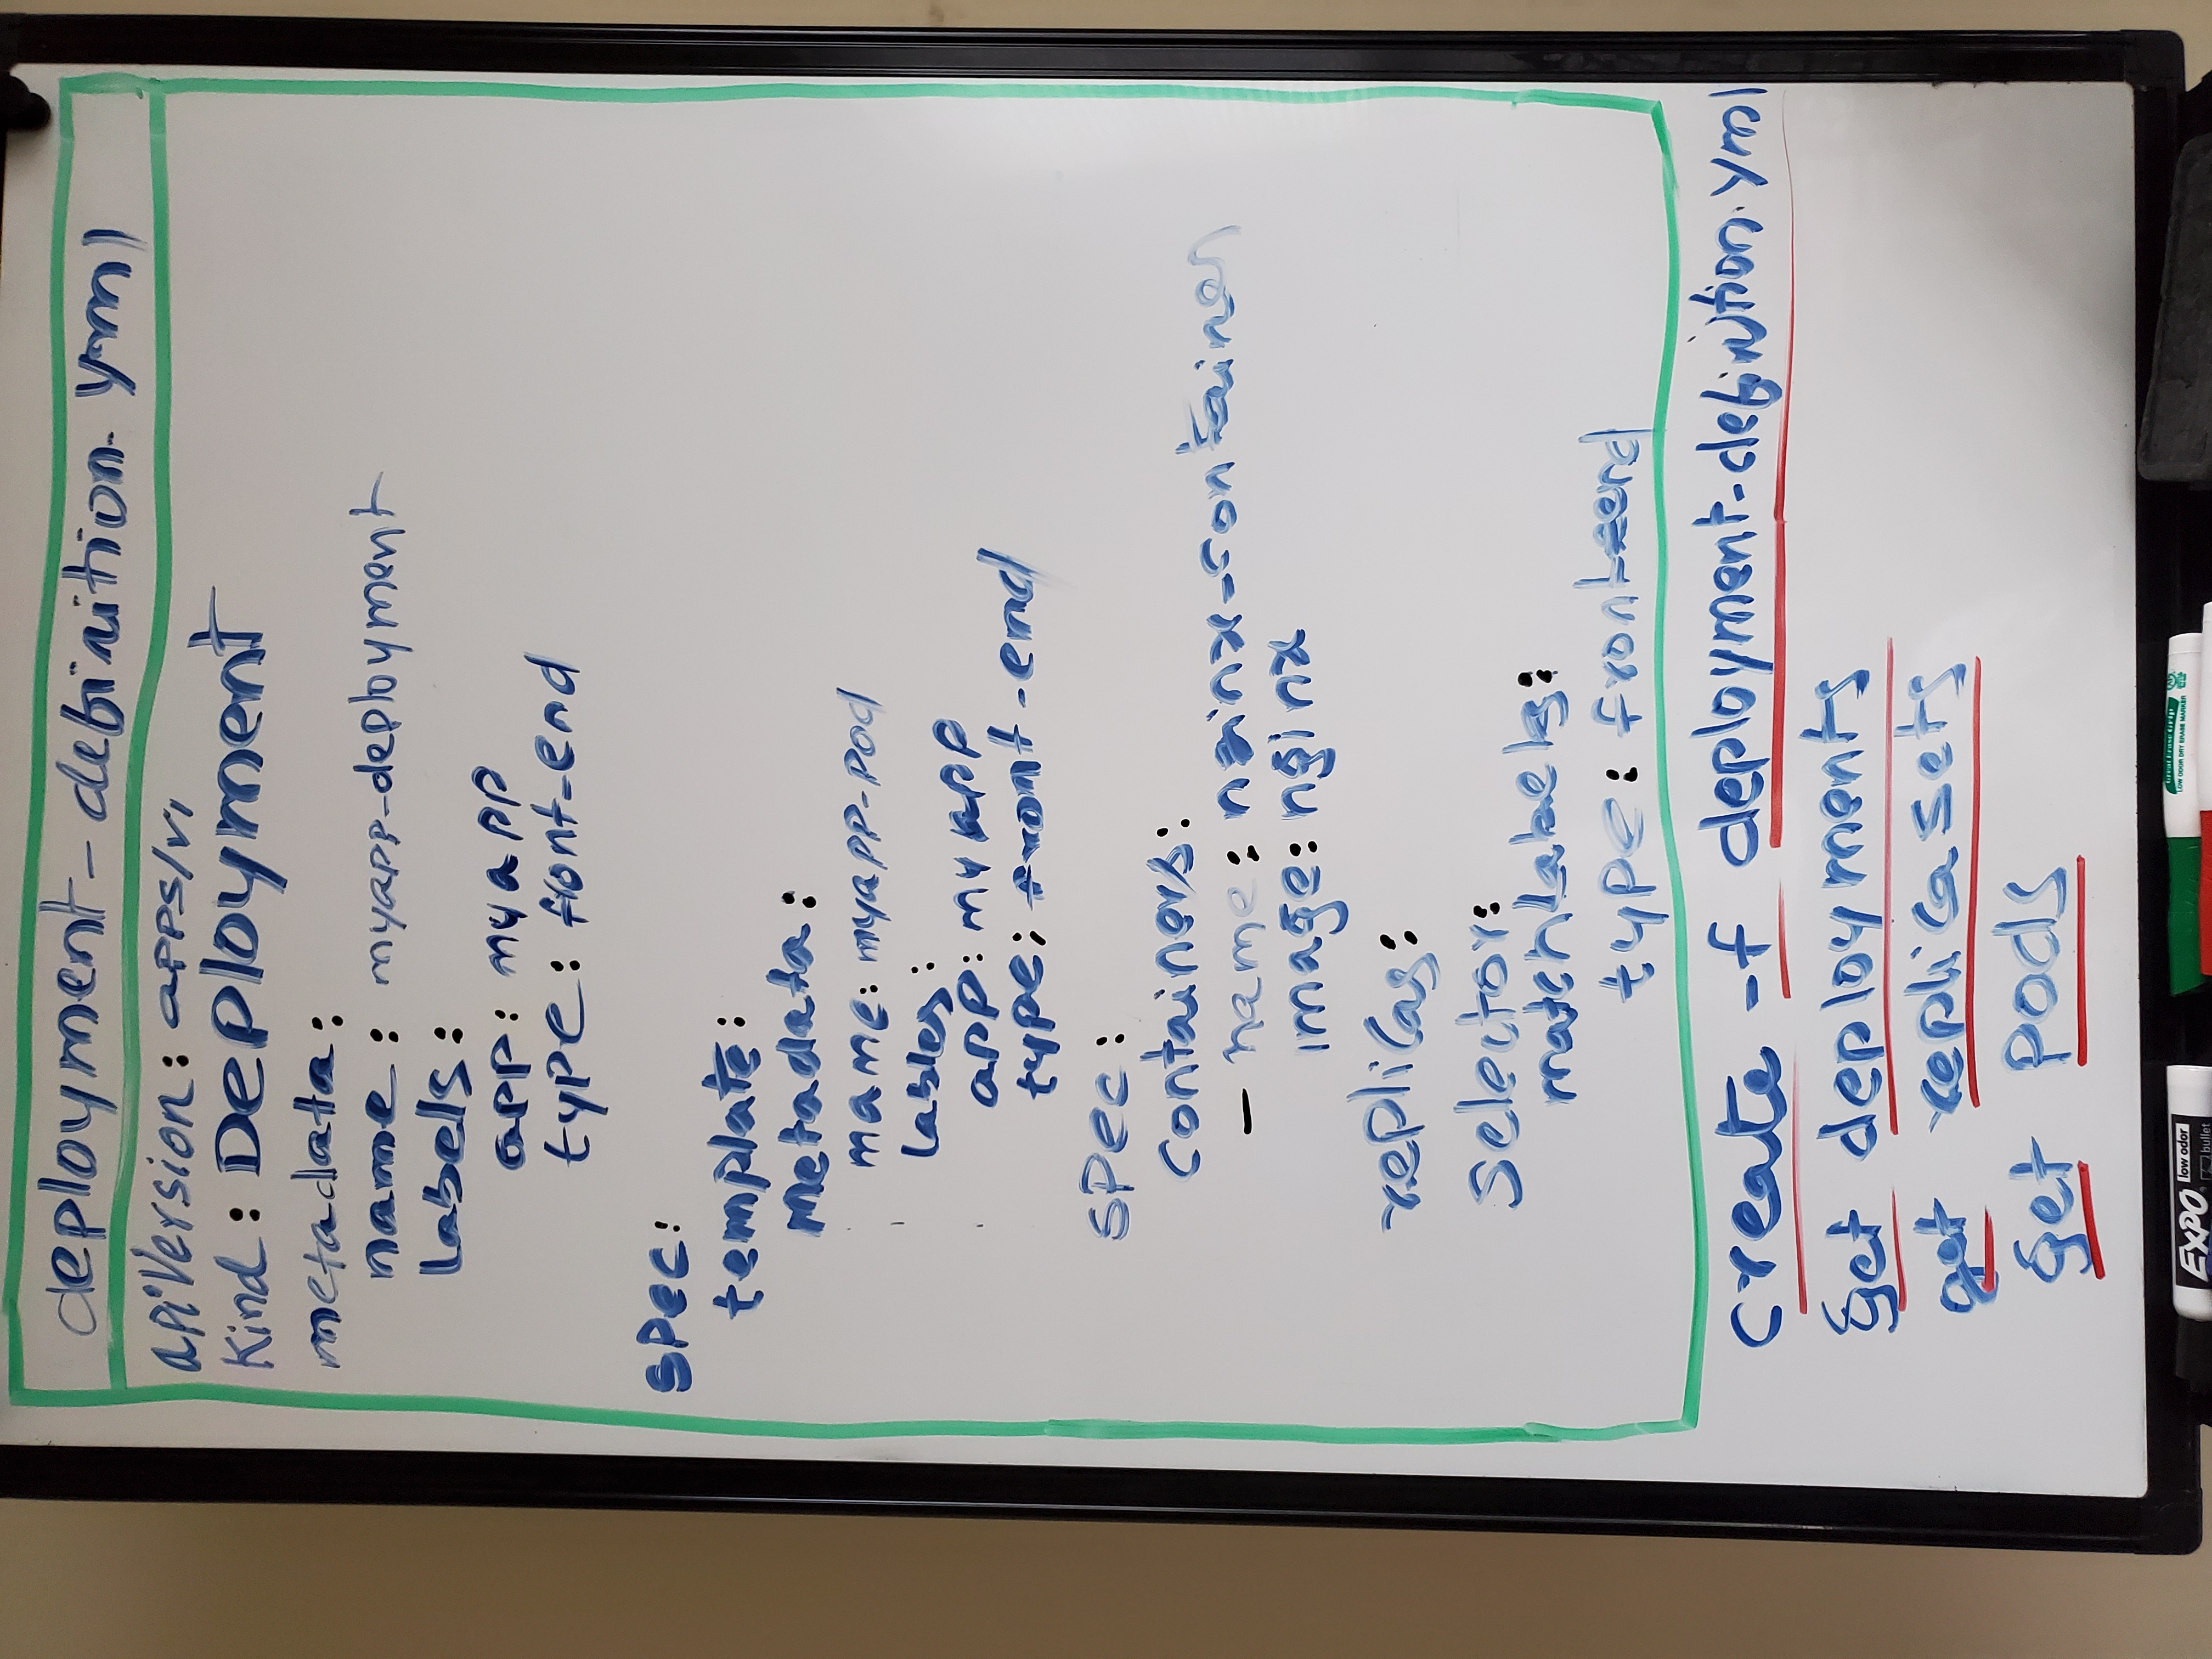 deployment-definition.yml
apiVersion: apps/v1
Kind: Deployment
metadata:
name: myapp-deployment
labels:
app: myapp
type: front-end
spec:
template:
metadata:
mame: myapp-pod
lables:
app: myapp
type: front-end
spec:
containers:
- name: nginx-container
image: nginx
replicas:
selector:
matchLabels:
type: front-end
create -f deployment-definition.yml
get deployments
get replicasets
get pods
EXPO low odor
bullet
Great Erase Grip
LOW ODOR DRY ERASE MARKER